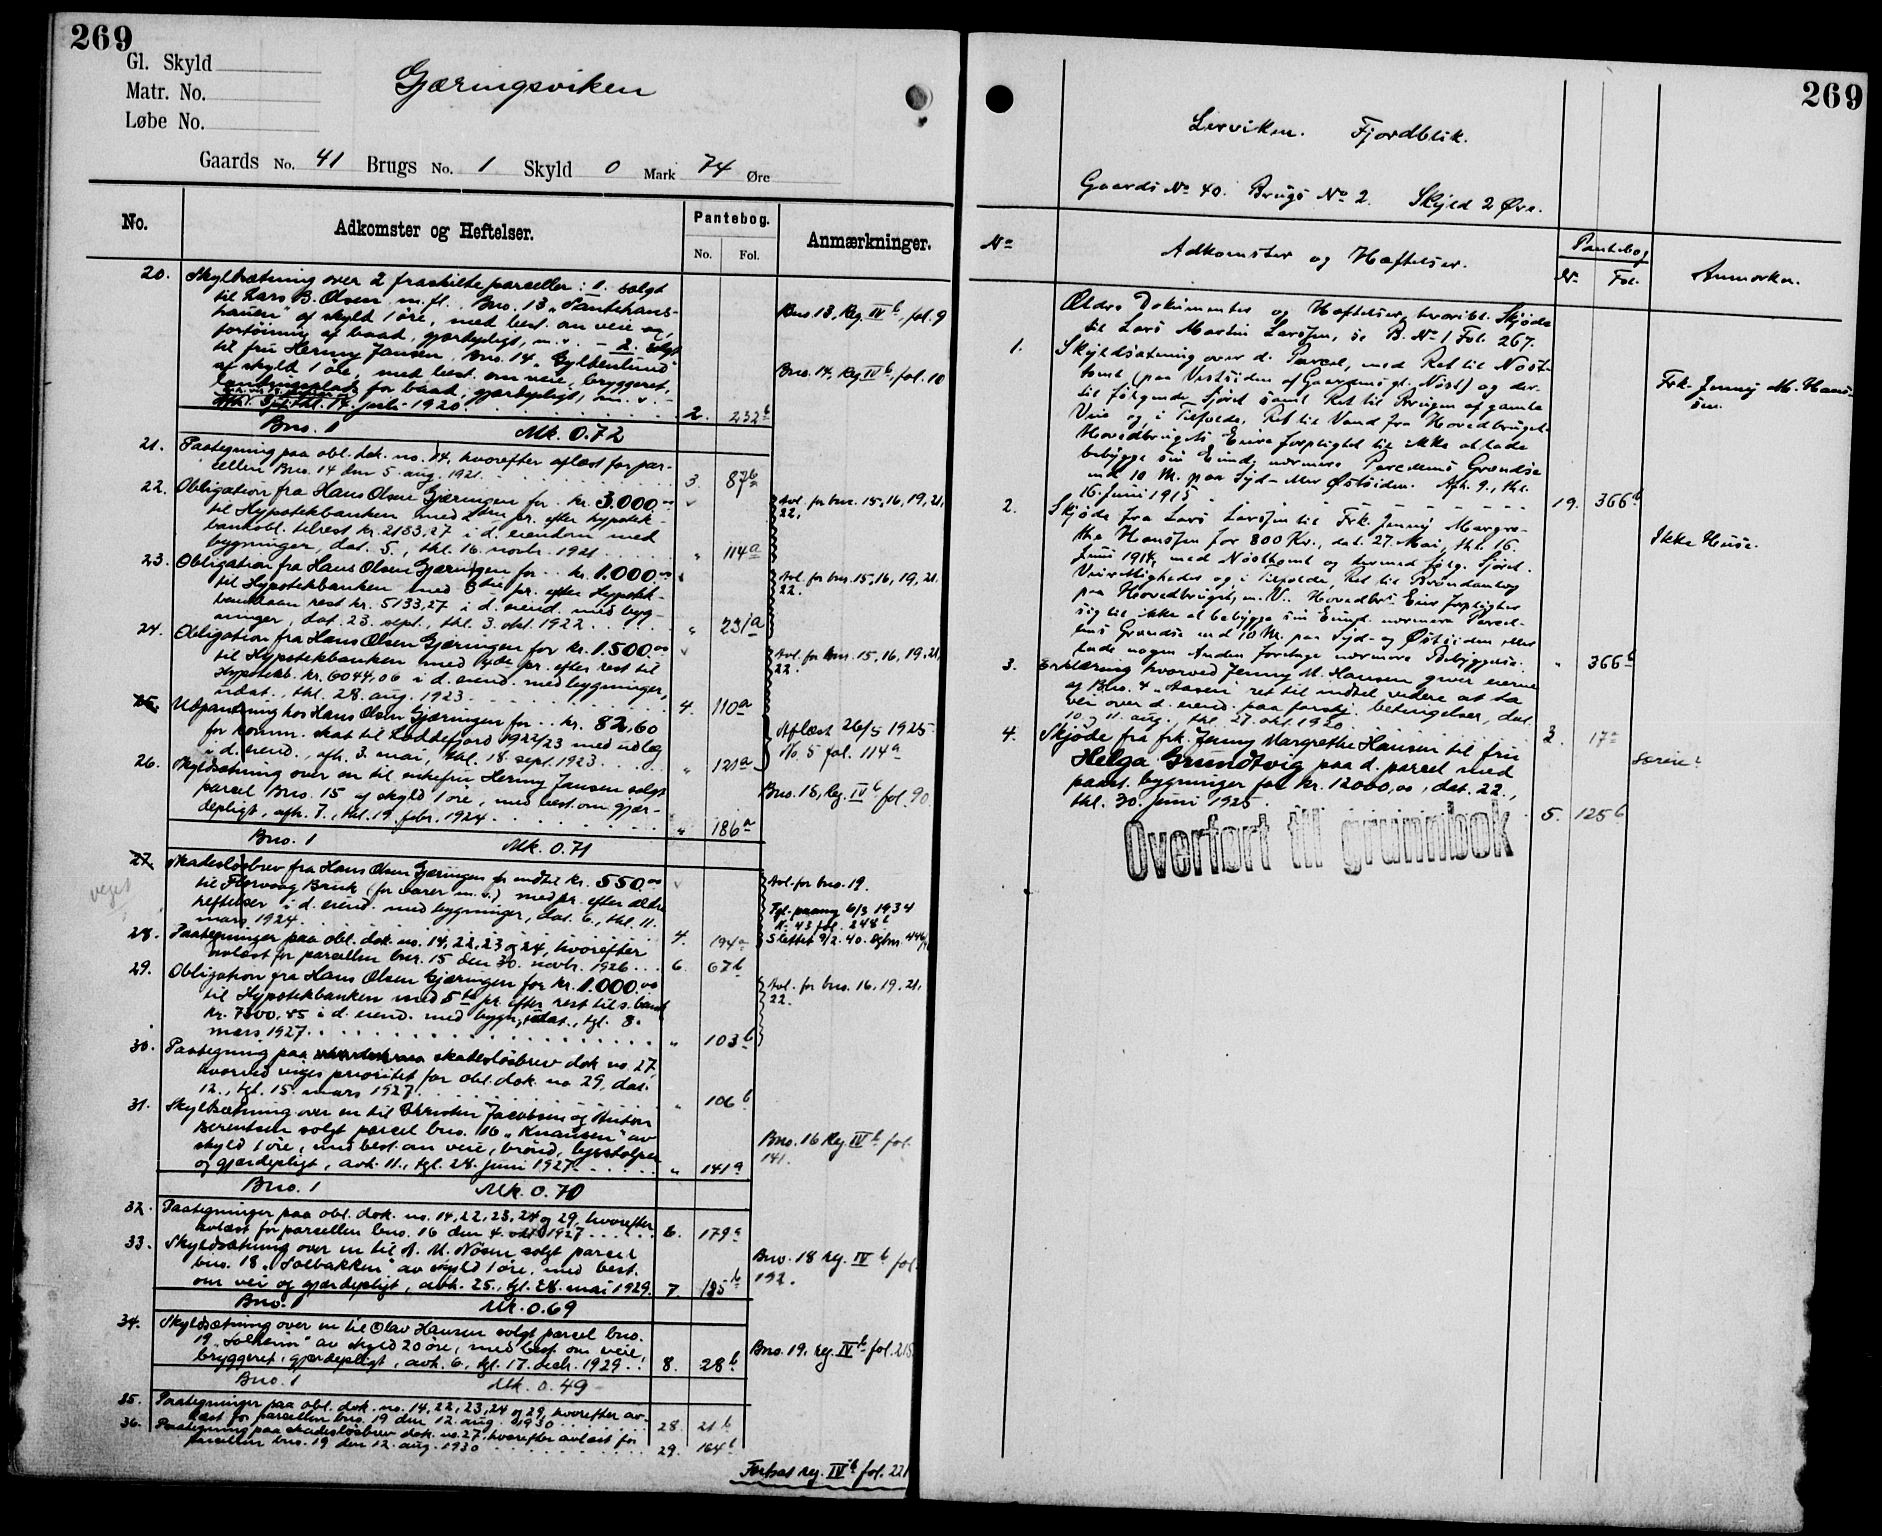 269
Gl. Skyld
Matr. No.
Løbe No.
Gjæringsviken
Gaards No. 41 Brugs No. 1 Skyld 0 Mark 74 Øre
No. Adkomster og Heftelser. Pantebog. Anmærkninger.
No. Fol.
20. Skyldsætning over 2 fraskilte parseller: 1. solgt
til Lars B. Olsen m. fl. Bno. 13
af skyld 1 øre, med best. om veie og Bno. 13, Reg. IVb, fol. 9
fortøining af baad, gjærdepligt, m.v. – 2. solgt
til fru Henny Jansen, Bno. 14 „Gyldenlund"
af skyld 1 øre, med best. om veie, bryggeret, Bno. 14, Reg IVb, fol. 10
landingsplads for baad, gjærdepligt, m. v. –
thl. 14. juli 1920. 2. 232b
Bno. 1 Mk. 0.72
21. Paategning paa obl. dok. no. 14, hvorefter aflæst for par-
cellen Bno. 14 den 5 aug. 1921. 3. 87b
22. Obligation fra Hans Olsen Gjæringen for kr. 3.000.00
til Hypotekbanken med 2den pr. efter hypotek- Avl. for bno. 15, 16, 19, 21,
bankobl. tilrest kr. 2133,27 i d. eiendom med 22.
bygninger, dat. 5., thl. 16. novbr. 1921 " 114a
23. Obligation fra Hans Olsen Gjæringen for kr. 1.000.00
til Hypotekbanken med 3die pr. efter Hypotek- Avl. for bno. 15, 16, 19, 21,
banklaan rest kr. 5133,27 i d. eiend. med byg- 22.
ninger, dat. 23. sept., thl. 3. okt. 1922 " 231a
24. Obligation fra Hans Olsen Gjæringen for kr. 1.500.00
til Hypotekbanken med 4de pr. efter rest til Avl. for bno. 15, 16, 19, 21,
Hypotekb. kr. 6044,06 i d. eiend. med bygninger, 22.
udat., thl. 28. aug. 1923. 4. 110a
25. Udpantning hos Hans Olsen Gjæringen for kr. 82,60
for komm. skat til Laddefjord 1922/23 med udlæg Aflæst 26/5 1925
i d. eiend., afh. 3. mai, thl. 18. sept. 1923. " 121a No. 5 fol. 114a
26. Skyldsætning over en til enkefru Henny Jansen solgt
parcel Bno. 15 af skyld 1 øre, med best. om gjær- Bno. 15, Reg. IVb fol. 90
depligt, afh. 7., thl. 19. febr. 1924. " 186a
Bno. 1 Mk. 0.71
27. Skadesløsbrev fra Hans Olsen Gjæringen for indtil kr. 550.00
til Florvaag Bruk (for varer m.v.) med pr. efter ældre Avl. for bno. 19.
heftelser i d. eiend. med bygninger, dat. 6., thl. 11. Tgl. paany 6/3 1934
mars 1924. 4. 194a N. 43 fol. 248b
28. Paategninger paa obl. dok. no. 14, 22, 23 og 24, hvorefter Slettet 9/2. 40.
avlæst for parcellen bnr. 15 den 30. novbr. 1926. 6. 67b
29. Obligation fra Hans Olsen Gjæringen for kr. 1.000.00
til Hypotekbanken med 5te pr. efter rest til s. bank Avl. for bno. 16, 19, 21,
i d. eiend. med bygn., udat., tgl. 8. 22.
mars 1927. " 103b
30. Paategning paa skadesløsbrev dok no. 27
hvorved viges prioritet for obl. dok. no 29, dat.
12., tgl. 15. mars 1927. " 106b
31. Skyldsætning over en til Christen Jacobsen og Anton
Berentsen solgt parcel bno. 16 „Knausen" av
skyld 1 øre, med best. om veie, brønd, lysstolper Bno. 16 Reg. IVb fol.
og gjærdepligt, avh. 11., tgl. 28. juni 1927. " 141a 141.
Bno. 1 Mk. 0.70
32. Paategninger paa obl. dok. no. 14, 22, 23, 24 og 29, hvorefter
avlæst for parcellen bno. 16 den 4. okt. 1927. 6. 179a
33. Skyldsætning over en til A. M. Nøsen solgt parcel
bno. 18 „Solbakken" av skyld 1 øre, med best. Bno. 18 reg. IVb fol.
om vei og gjærdepligt, avh. 25., tgl. 28. mai 1929. 7. 135b 192.
Bno. 1 Mk. 0.69
34. Skyldsætning over en til Olav Hansen solgt parcel bno.
19 „Solheim" av skyld 20 øre, med best. om veie, Bno. 19. reg. IVb fol. 215
bryggeret, gjærdepligt, avh. 6., tgl. 17. decb. 1929. 8. 28b
Bno. 1 Mk. 0.49
35. Paategninger paa obl. dok. no. 14, 22, 23, 24 og 29, hvorefter av-
læst for parcellen bno. 19 den 12. aug. 1930 28. 21b
36. Paategning paa skadesløsbrev dok. no. 27, hvorefter avlæst for
parcellen bno. 19 den 12. aug. 1930 29. 164b
Fortsat reg. IVb fol. 221
269
Lerviken. Fjordblik.
Gaards No 40. Brugs No 2. Skyld 2 Øre.
No Adkomster og Hæftelser. Pantebog Anmærkn.
No Fol.
Ældre Dokumenter og Hæftelser, hvoribl. Skjøde
til Lars Martin Larssen, se B. No 1 Fol. 267.
1. Skyldsætning over d. Parcel, med Ret til Nøst-
tomt (paa Vestsiden af Gaardens gl. Nøst) og der- Frk. Jenny M. Hans-
til følgende Sjøret samt Ret til Brugen af gamle sen.
Veie og, i Tilfælde, Ret til Vand fra Hovedbruget.
Hovedbrugets Eiere forpligtet til ikke at lade
bebygge sin Eiend. nærmere Parcellens Grændse
end 10 M. paa Syd- eller Østsiden. Afh. 9., thl.
16. Juni 1915 19. 366b
2. Skjøde fra Lars Larssen til Frk. Jenny Margre-
the Hanssen for 800 Kr., dat. 27. Mai, thl. 16. Ikke Huse.
Juni 1915, med Nøsttomt og dermed følg. Sjøret.
Veirettigheder og, i Tilfælde, Ret til Brøndanlæg
paa Hovedbruget, m. V. Hovedbr. Eier forpligter
sig til ikke at bebygge sin Eiend. nærmere Parcel-
lens Grændse end 10 M. paa Syd- og Østsiden eller
lade nogen Anden foretage nærmere Bebyggelse. " 366b
3. Erklæring hvorved Jenny M. Hansen giver eierne
af Bno. 4 „Aasen" ret til indtil videre at ha
vei over d. eiend. paa forskj. betingelser, dat.
10. og 11. aug., thl. 27. okt. 1920 3. 17a
4. Skjøde fra frk. Jenny Margrethe Hansen til fru
Helga Grundtvig paa d. parcel med
paast. bygninger for kr. 12000,00, dat. 22.,
thl. 30. juni 1925. 5. 125b
Overført til grunnbok